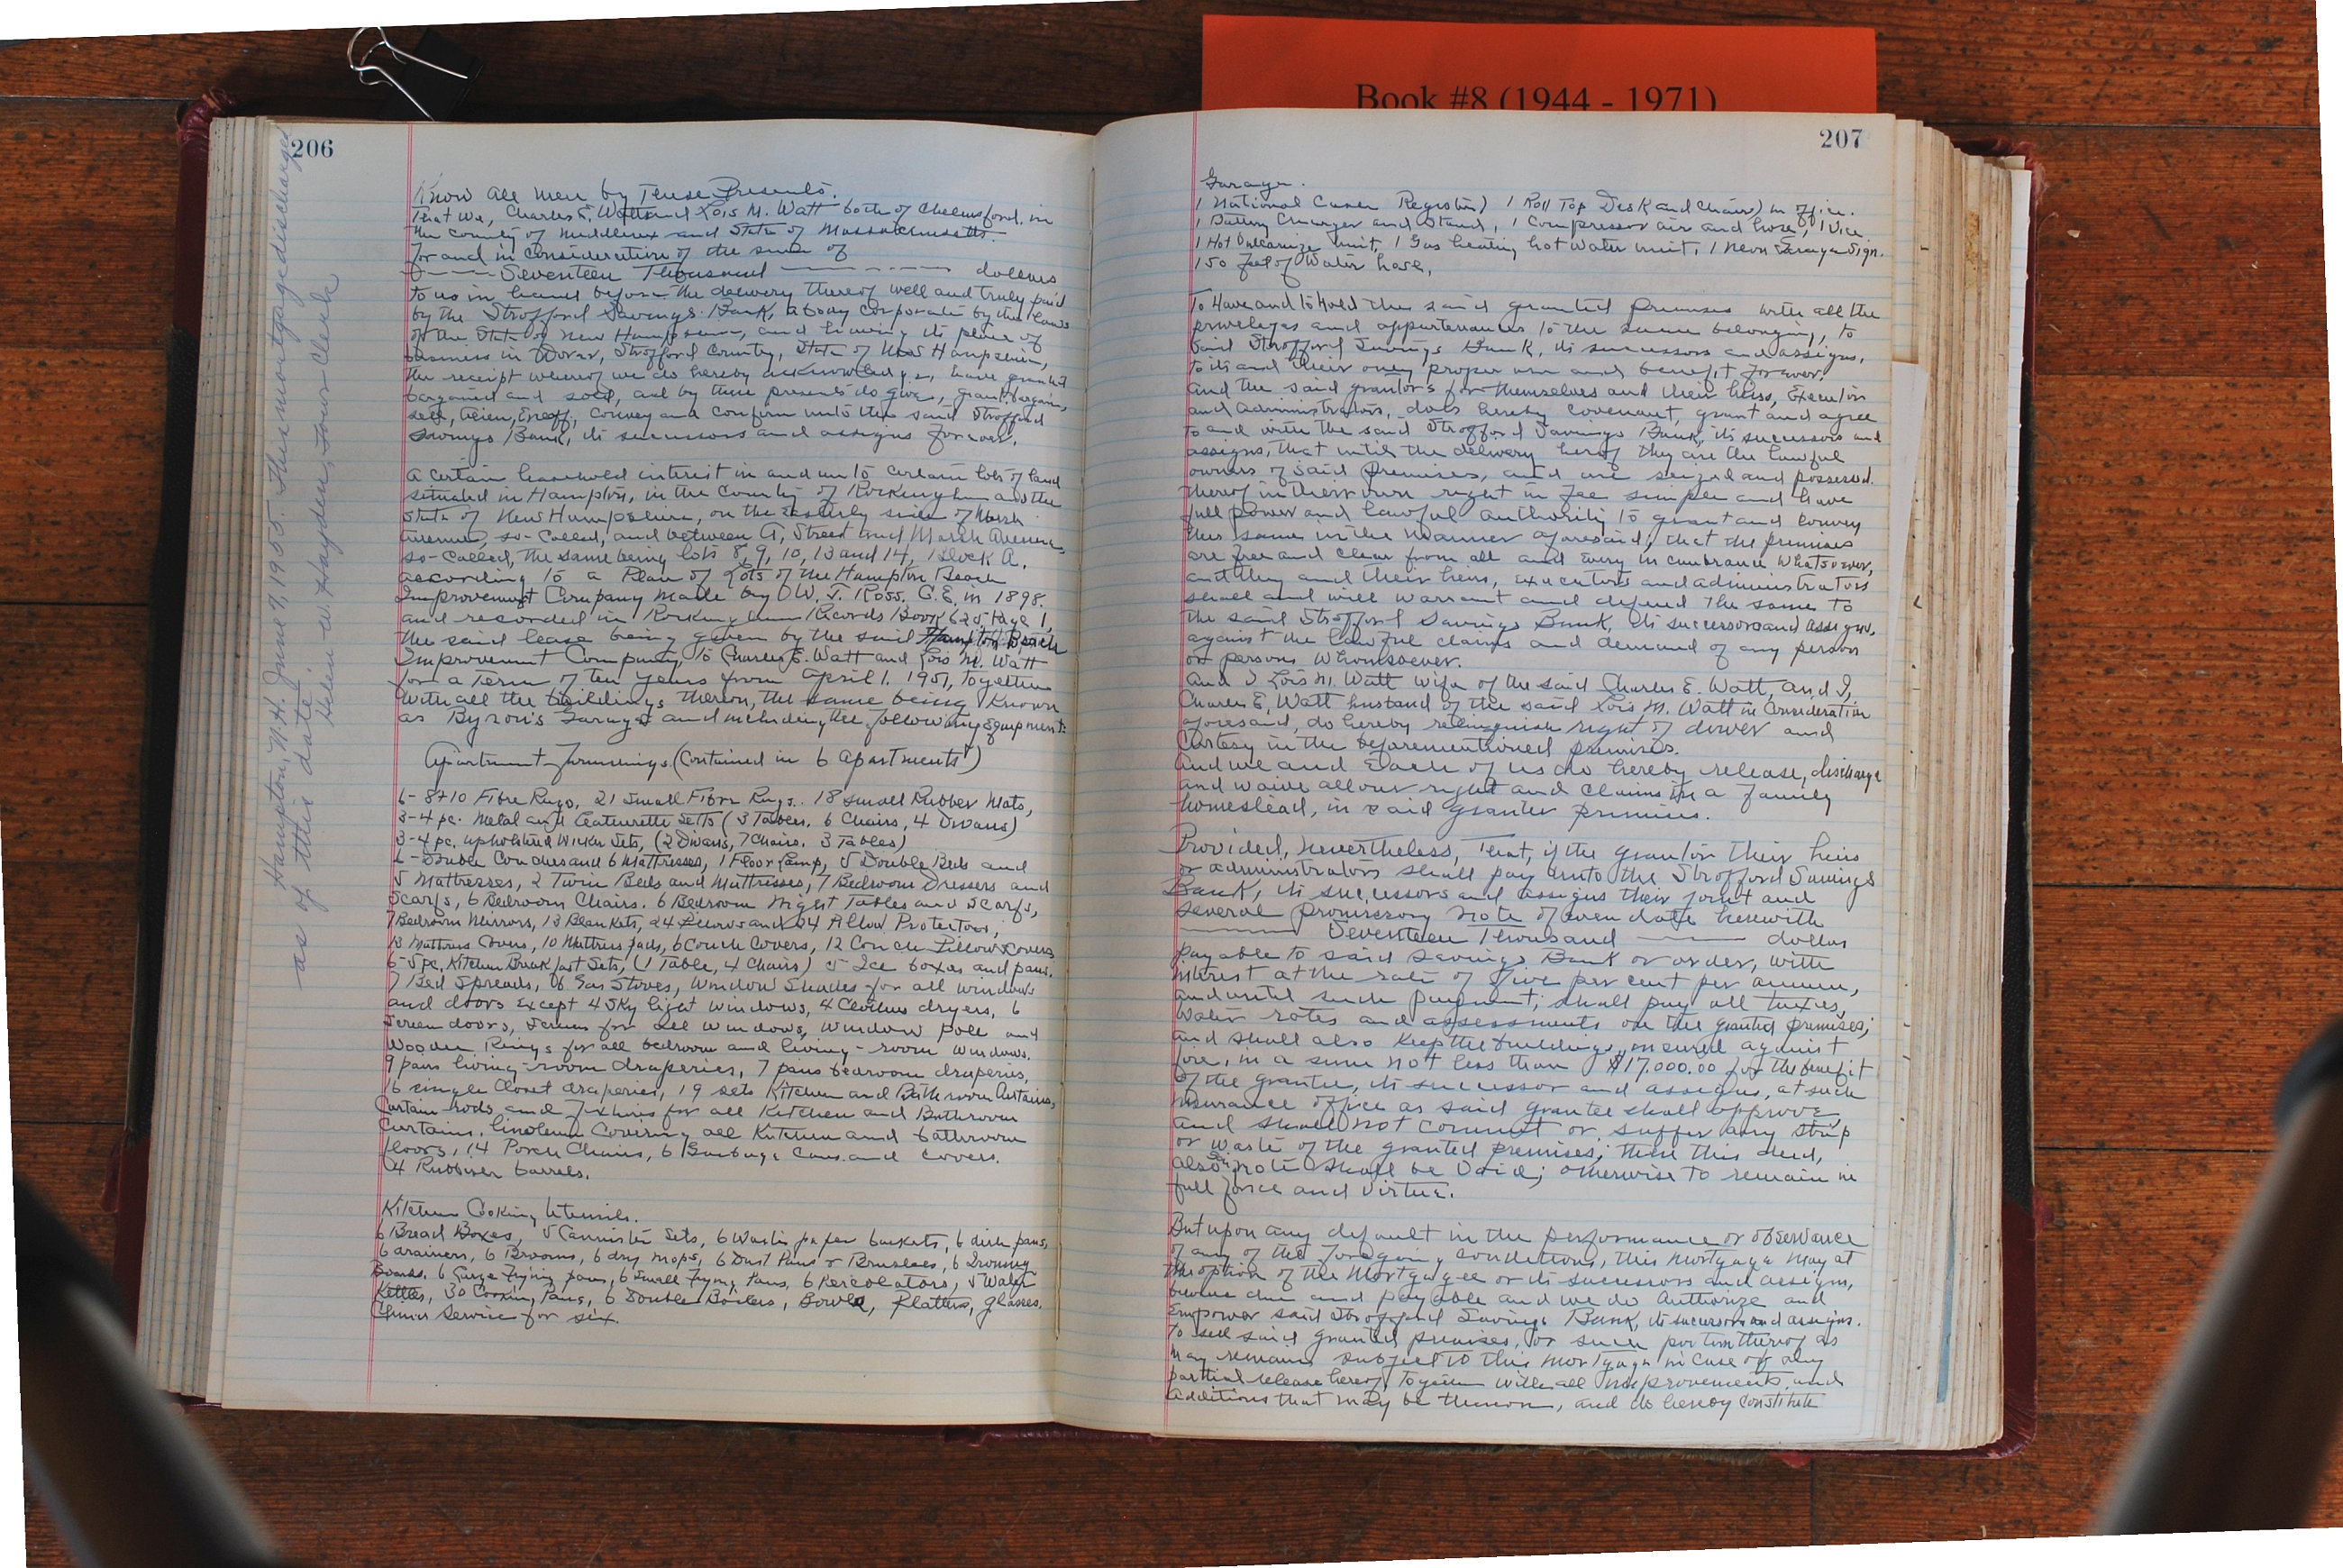 Book #8 (1944 - 1971)
206
Hampton, N.H. June 7, 1955. This mortgage discharged
as of this date
Helen W. Hayden, Town Clerk
Know all men by These Presents.
That We, Charles E. Watt and Lois M. Watt both of Chelmsford, in
the county of Middlesex and State of Massachusetts.
for and in consideration of the sum of
Seventeen Thousand dollars
to us in hand before the delivery thereof well and truly paid
by the Strafford Savings Bank, a body corporate by the laws
of the State of New Hampshire, and having its place of
business in Dover, Strafford County, State of New Hampshire,
the receipt whereof we do hereby acknowledge, have granted
bargained and sold, and by these presents do give, grant, bargain,
sell, alien, Enoff, convey and confirm unto the said Strafford
Savings Bank, its successors and assigns forever.
A certain leasehold interest in and unto certain lots of land
situated in Hampton, in the County of Rockingham and the
State of New Hampshire, on the Easterly side of Marsh
Avenue, so-called, and between A, Street and Marsh Avenue
so-called, the same being lots 8, 9, 10, 13 and 14, Block A.
according to a Plan of Lots of the Hampton Beach
Improvement Company made by W. T. Ross. C.E. in 1898.
and recorded in Rockingham Records Book 625 Page 1,
the said lease being given by the said Hampton Beach
Improvement Company, to Charles E. Watt and Lois M. Watt
for a Term of ten years from April 1. 1951, together
with all the buildings thereon, the same being Known
as Byron's Garage and including the following equipment:
Apartment Furnishings (Contained in 6 apartments)
6- 8x10 Fibre Rugs, 21 Small Fibre Rugs. 18 small Rubber Mats,
3-4 pc. Metal and Leatherette Setts (3 Tables. 6 Chairs, 4 Divans)
3-4 pc. upholstered Wicker Sets, (2 Divans, 7 Chairs. 3 Tables)
6- Double Couches and 6 Mattresses, 1 Floor Lamp, 5 Double Beds and
5 Mattresses, 2 Twin Beds and Mattresses, 7 Bedroom Dressers and
Scarfs, 6 Bedroom Chairs. 6 Bedroom Night Tables and Scarfs,
7 Bedroom Mirrors, 13 Blankets, 24 Pillows and 24 Pillow Protectors,
13 Mattress Covers, 10 Mattress pads, 6 Couch Covers, 12 Couch Pillow Covers
6-5 pc. Kitchen Breakfast Sets, (1 Table, 4 Chairs) 5 Ice boxes and pans.
7 Bed Spreads, 6 Gas Stoves, Window Shades for all windows
and doors except 4 Sky light windows, 4 Clothes dryers, 6
Screen doors, Screens for all windows, Window pole and
Wooden Rings for all bedroom and living-room windows.
9 pairs living-room draperies, 7 pairs bedroom draperies,
16 single closet draperies, 19 sets Kitchen and Bathroom Curtains,
Curtain rods and fixtures for all Kitchen and Bathroom
Curtains, linoleum covering all Kitchen and bathroom
floors, 14 Porch Chairs, 6 Garbage Cans and covers.
4 Rubbish barrels.
Kitchen Cooking Utensils.
6 Bread Boxes, 5 Cannister Sets, 6 Waste paper baskets, 6 dish pans,
6 drainers, 6 Brooms, 6 dry mops, 6 Dust Pans & Brushes, 6 Ironing
Boards. 6 Large Frying pans, 6 Small Frying Pans, 6 Percolators, 5 Water
Kettles, 30 Cooking Pans, 6 Double Boilers, Bowls, Platters, glasses.
China service for six.
207
Garage.
1 National Cash Register) 1 Roll Top Desk and Chair) in office.
1 Battery Charger and Stand, 1 Compressor air and hose, 1 Vice
1 Hot Vulcanize unit, 1 Gas heating hot water unit, 1 Neon Garage Sign.
150 feet of Water hose,
To Have and to Hold the said granted premises with all the
privileges and appurtenances to the same belonging, to
said Strafford Savings Bank, its successors and assigns,
to its and their only proper use and benefit forever.
and the said grantors for themselves and their heirs, Executors
and Administrators, does hereby covenant, grant and agree
to and with the said Strafford Savings Bank, its successors and
assigns, that until the delivery hereof they are the lawful
owners of said premises, and are seized and possessed
thereof in their own right in fee simple and have
full power and lawful authority to grant and convey
the same in the manner aforesaid; that the premises
are free and clear from all and every incumbrance whatsoever,
and they and their heirs, executors and administrators
shall and will warrant and defend the same to
the said Strafford Savings Bank, its successors and assigns,
against the lawful claims and demand of any person
or persons whomsoever.
And I Lois M. Watt wife of the said Charles E. Watt, and I,
Charles E. Watt husband of the said Lois M. Watt in Consideration
aforesaid, do hereby relinquish right of dower and
Curtesy in the beforementioned premises.
And we and Each of us do hereby release, discharge
and waive all our right and claims in a family
homestead, in said granter premises.
Provided, Nevertheless, That, if the grantor their heirs
or administrators shall pay unto the Strafford Savings
Bank, its successors and assigns their joint and
several promissory note of even date herewith
Seventeen Thousand dollars
payable to said Savings Bank or order, with
interest at the rate of five per cent per annum,
and until such payment, shall pay all taxes,
Water rates and assessments on the granted premises;
and shall also keep the buildings insured against
fire, in a sum not less than $17,000.00 for the benefit
of the grantee, its successor and assigns, at such
insurance office as said grantee shall approve,
and shall not commit or suffer any strip
or waste of the granted premises; then this deed,
also note shall be void; otherwise to remain in
full force and virtue.
But upon any default in the performance or observance
of any of the foregoing conditions, this mortgage may at
the option of the Mortgagee or its successors and assigns,
become due and payable and we do Authorize and
Empower said Strafford Savings Bank, its successors and assigns.
To sell said granted premises, or such portion thereof as
may remain subject to this mortgage in case of any
partial release hereof, together with all improvements and
additions that may be thereon, and do hereby constitute